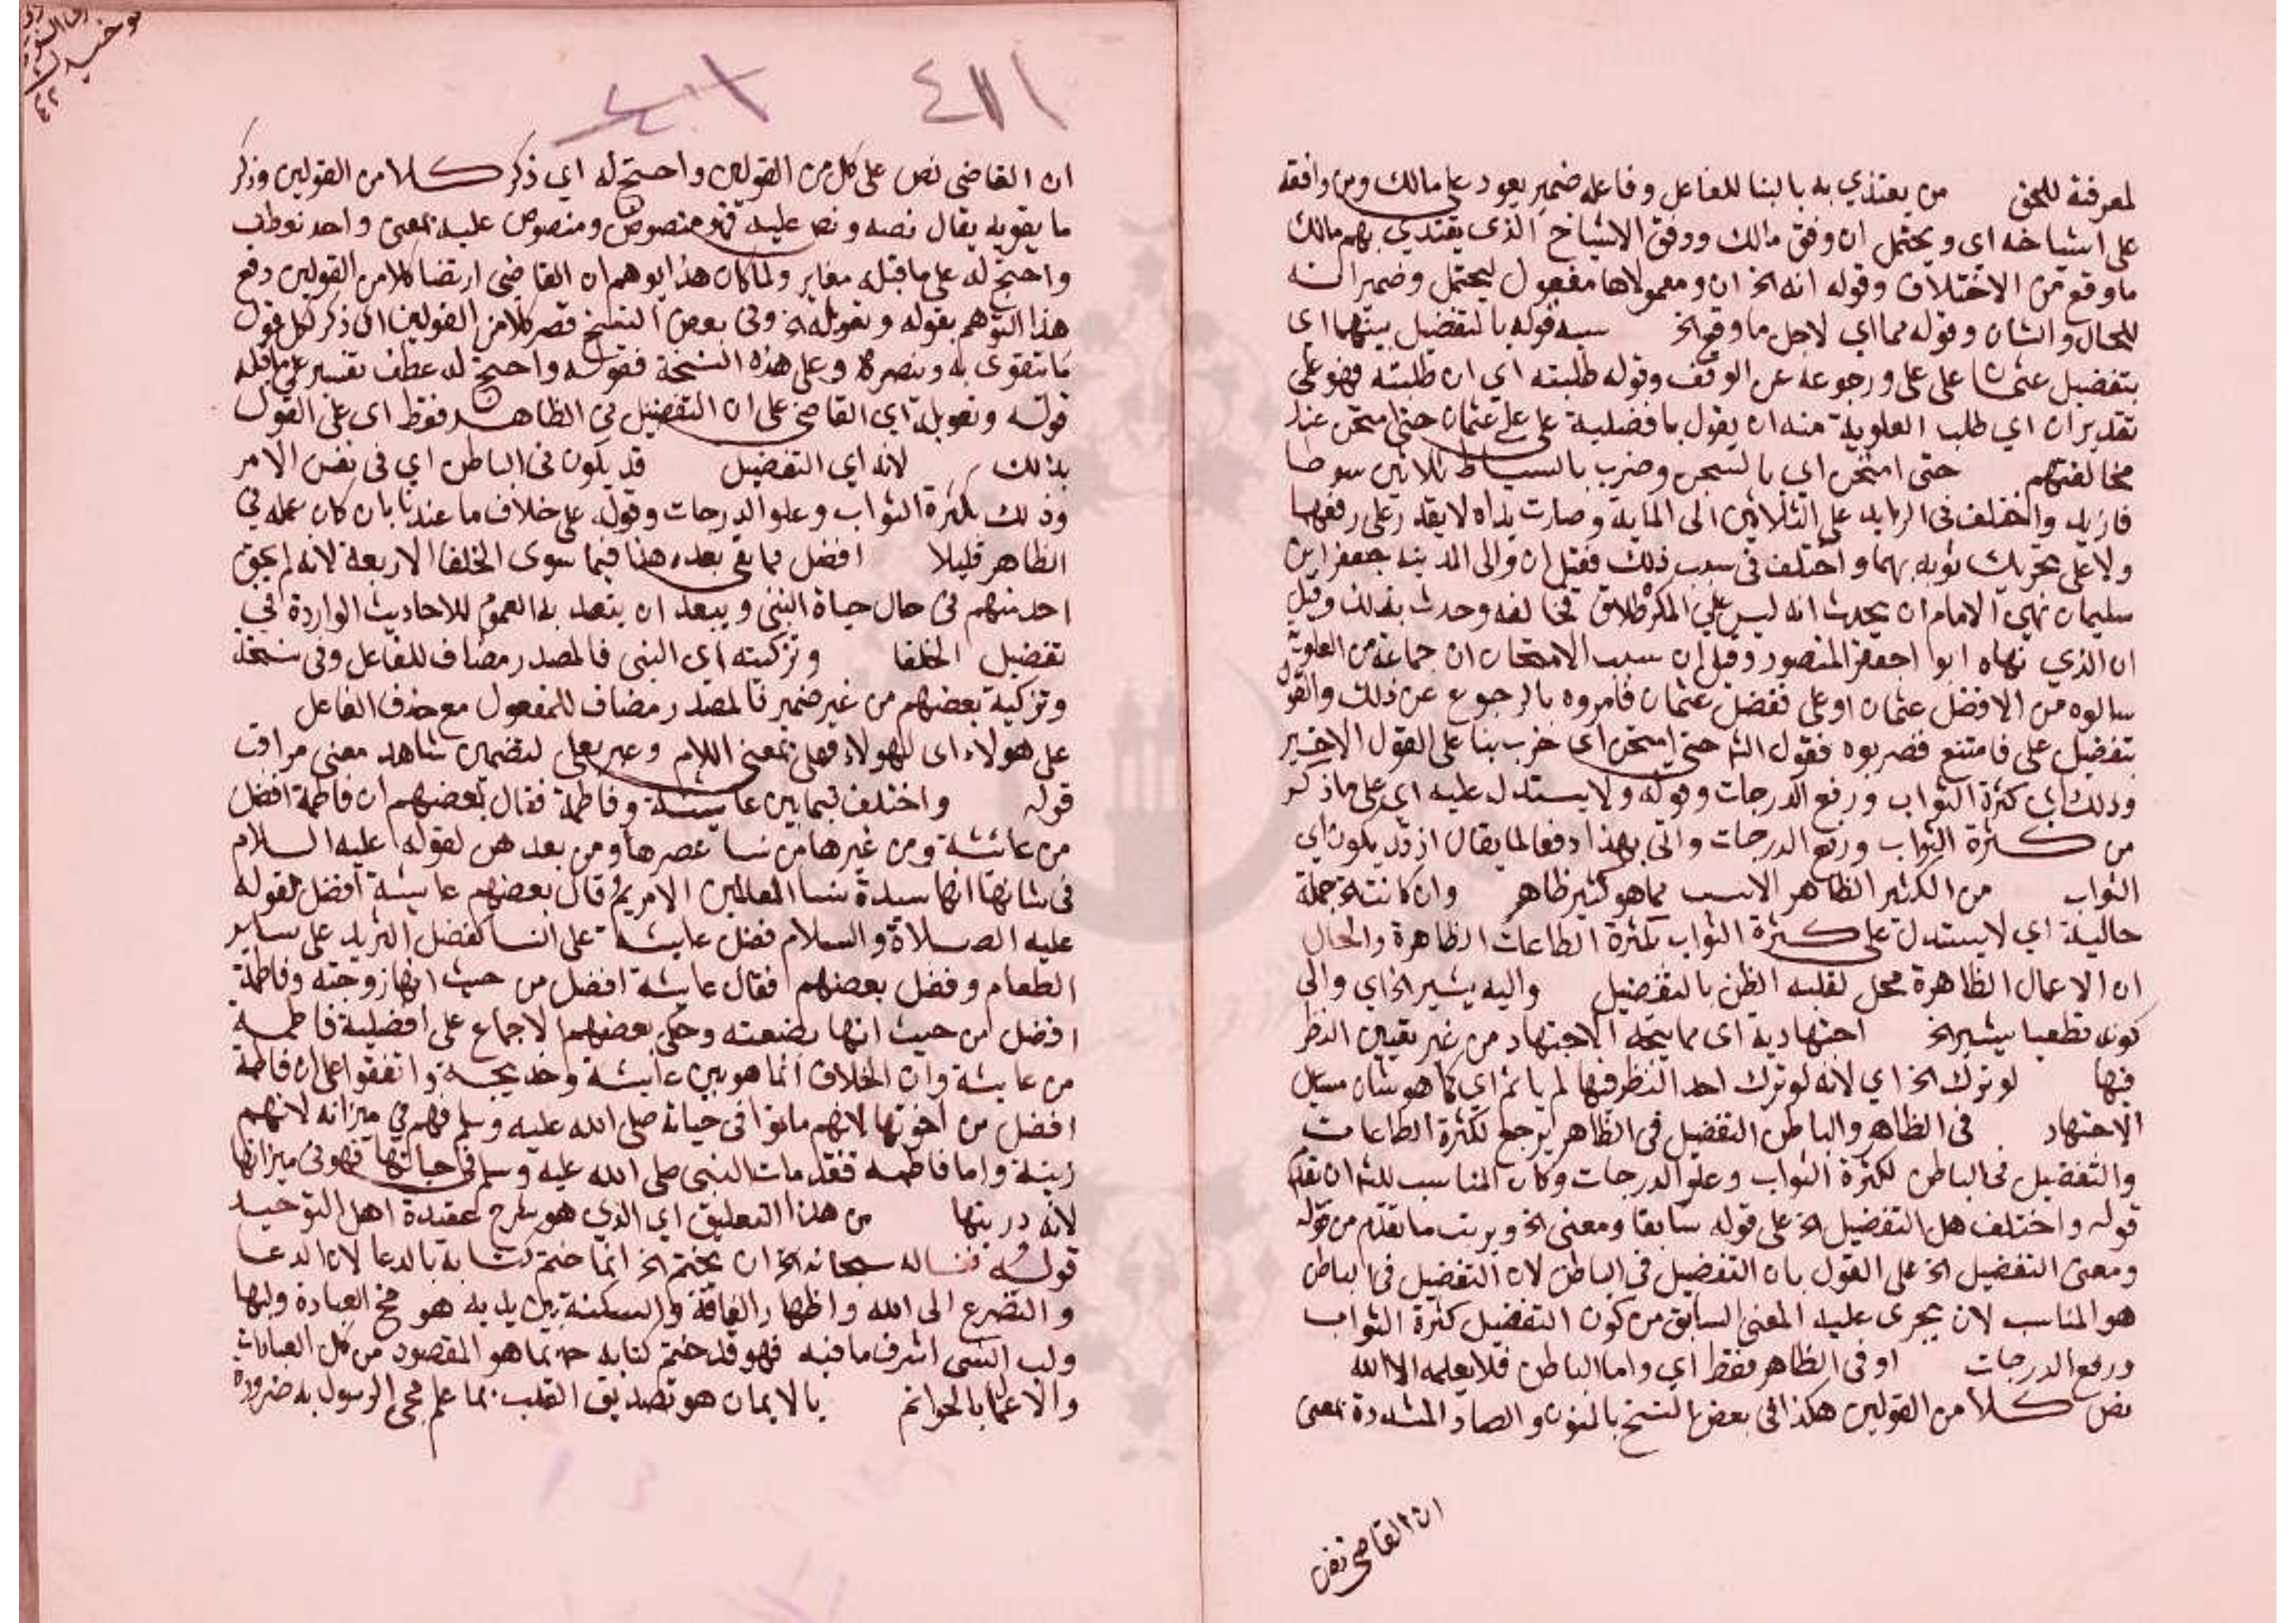 لمعرفته للحق من يقتدي به بالبنا للفاعل وفاعله ضمير يعود على مالك ومن وافقه
على اشياخه اي ويحتمل ان وفق مالك ووفق الاشياخ الذي يقتدي بهم مالك
ما وقع من الاختلاف وقوله انه الخ ان ومعمولاها مفعول ليحتمل وضمير انه
للحال والشان وقوله مما اي لاجل ما وقع الخ سببه قوله بالتفضيل بينهما اي
بتفضيل عثمان على على ورجوعه عن الوقف وقوله طلبته اي ان طلبته فهو على
تقدير ان اي طلب العلوية منه ان يقول بافضلية على على عثمان حتى امتحن عند
مخالفتهم حتى امتحن اي بالسجن وضرب بالسياط ثلاثين سوطا
فازيد واختلف فى الزايد على الثلاثين الى الماية وصارت يداه لا يقدر على رفعهما
ولا على تحريك ثوبه بهما واختلف فى سبب ذلك فقيل ان والى المدينة جعفر ابن
سليمان نهى الامام ان يحدث انه ليس على المكره طلاق فخالفه وحدث بذلك وقيل
ان الذي نهاه ابوا جعفر المنصور وقيل ان سبب الامتحان ان جماعة من العلوية
سالوه من الافضل عثمان او على ففضل عثمان فامروه بالرجوع عن ذلك والقول
بتفضيل على فامتنع فضربوه فقول الشه حتى امتحن اى ضرب بنا على القول الاخير
وذلك اي كثرة الثواب ورفع الدرجات وقوله ولا يستدل عليه اي على ما ذكر
من كثرة الثواب ورفع الدرجات واتى بهذا دفعا لما يقال اذ قد يكون اي
الثواب من الكثير الظاهر الانسب مما هو كثير ظاهر وان كانت الخ جملة
حالية اي لا يستدل على كثرة الثواب بكثرة الطاعات الظاهرة والحال
ان الاعمال الظاهرة محل لغلبه الظن بالتفضيل واليه يشير الخ اي والى
كونه قطعيا يشير الخ اجتهادية اى مما يتجه الاجتهاد من غير تعيين النظر
فيها لو ترك الخ اي لانه لو ترك احد النظر فيها لم ياثم اي كما هو شان مسايل
الاجتهاد فى الظاهر والباطن التفضيل فى الظاهر يرجع لكثرة الطاعات
والتفضيل فى الباطن لكثرة الثواب وعلو الدرجات وكان المناسب للشه ان يقدم
قوله واختلف هل التفضيل الخ على قوله سابقا ومعنى الخ ويرتب ما تقدم من قوله
ومعنى التفضيل الخ على القول بان التفضيل فى الباطن لان التفضيل فى الباطن
هو المناسب لان يجرى عليه المعنى السابق من كون التفضيل كثرة الثواب
ورفع الدرجات او فى الظاهر فقط اي واما الباطن فلا يعلمه الا الله
نص كلا من القولين هكذا فى بعض النسخ بالنون والصاد المشددة بمعنى
ان القاضى نص
ان القاضى نص على كل من القولين واحتج له اي ذكر كلا من القولين وذكر
ما يقويه يقال نصه ونص عليه فهو منصوص ومنصوص عليه بمعنى واحد فعطف
واحتج له على ما قبله مغاير ولما كان هذا يوهم ان القاضى ارتضا كلا من القولين دفع
هذا التوهم بقوله وتعويله الخ وفى بعض النسخ نصر كلا من القولين اى ذكر لكل قول
ما يتقوى به وينصره وعلى هذه النسخة فقوله واحتج له عطف تفسير على ما قبله
قوله وتعويله اي القاضى على ان التفضيل فى الظاهر فقط اى على القول
بذلك لانه اي التفضيل قد يكون فى الباطن اي فى نفس الامر
وذلك بكثرة الثواب وعلو الدرجات وقوله على خلاف ما عندنا بان كان عمله في
الظاهر قليلا افضل مما بقى بعده هذا فيما سوى الخلفا الاربعة لانه لم يبق
احد منهم فى حال حياة النبى ويبعد ان يقصد به العموم للاحاديث الواردة في
تفضيل الخلفا وتزكيته اي النبى فالمصدر مضاف للفاعل وفى نسخة
وتزكية بعضهم من غير ضمير فالمصدر مضاف للمفعول مع حذف الفاعل
على هولاء اى لهولاء فعلى بمعنى اللام وعبر بعلى لتضمين شاهد معنى مراقب
قوله واختلف فيما بين عايشة وفاطمة فقال بعضهم ان فاطمة افضل
من عائشة ومن غيرها من نسا عصرها ومن بعدهن لقوله عليه السلام
فى شانها انها سيدة نسا العالمين الا مريم قال بعضهم عايشة افضل لقوله
عليه الصلاة والسلام فضل عايشة على النسا كفضل الثريد على ساير
الطعام وفضل بعضهم فقال عايشة افضل من حيث انها زوجته وفاطمة
افضل من حيث انها بضعته وحكى بعضهم الاجماع على افضلية فاطمه
من عايشة وان الخلاف انما هو بين عايشة وخديجة واتفقوا على ان فاطمة
افضل من اخوتها لانهم ماتوا فى حياته صلى الله عليه وسلم فهم في ميزانه لانهم
زينة واما فاطمه فقد مات النبى صلى الله عليه وسلم فى حياتها فهو فى ميزانها
لانه من هذا التعليق اي الذي هو شرح عقيدة اهل التوحيد
قوله فنساله سبحانه الخ ان يختم الخ انما ختم كتابه بالدعا لان الدعا
والتضرع الى الله واظهار الفاقة والمسكنة بين يديه هو مخ العبادة ولبها
ولب الشى اشرف ما فيه فهو قد ختم كتابه بما هو المقصود من كل العبادات
والاعمال بالخواتم بالايمان هو تصديق القلب بما علم مجى الرسول به ضرورة